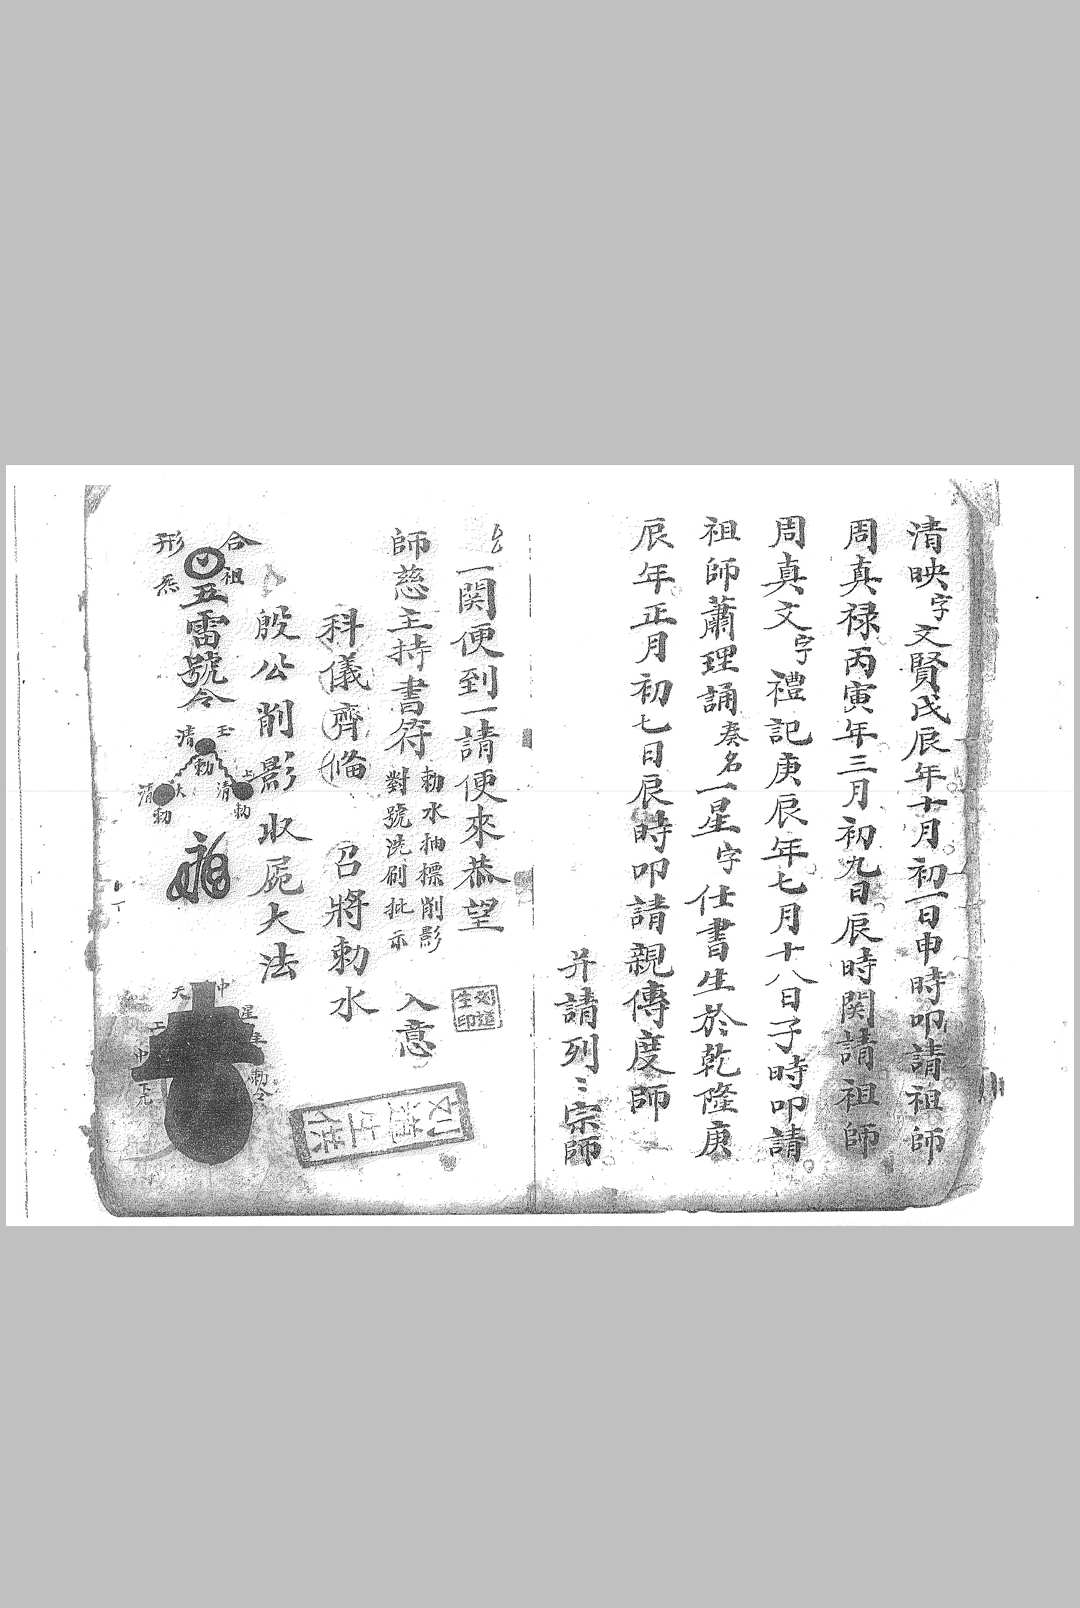 清映字文賢戊辰年十月初一日申時叩請祖師
周真禄丙寅年三月初九日辰時関請祖師
周真文字禮記庚辰年七月十八日子時叩請
祖師蕭理誦奏名一星字仕書生於乾隆庚
辰年正月初七日辰時叩請親傳度師
并請列〻宗師
一関便到一請便來恭望
師慈主持書符
勅水抽標削影
對號洗刷批示
入意
科儀齊俻 召將勅水
殷公削影收屍大法
合祖
五雷號令
形炁
玉清
勅
上清
勅
太清
勅
劉道
生印